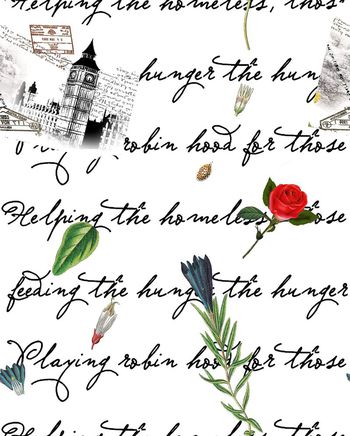 Helping the homeless, those
hunger the hun
robin hood for those
Helping the homeless those
feeding the hunge the hunger
Playing robin hood for those
Helping the homeless, those